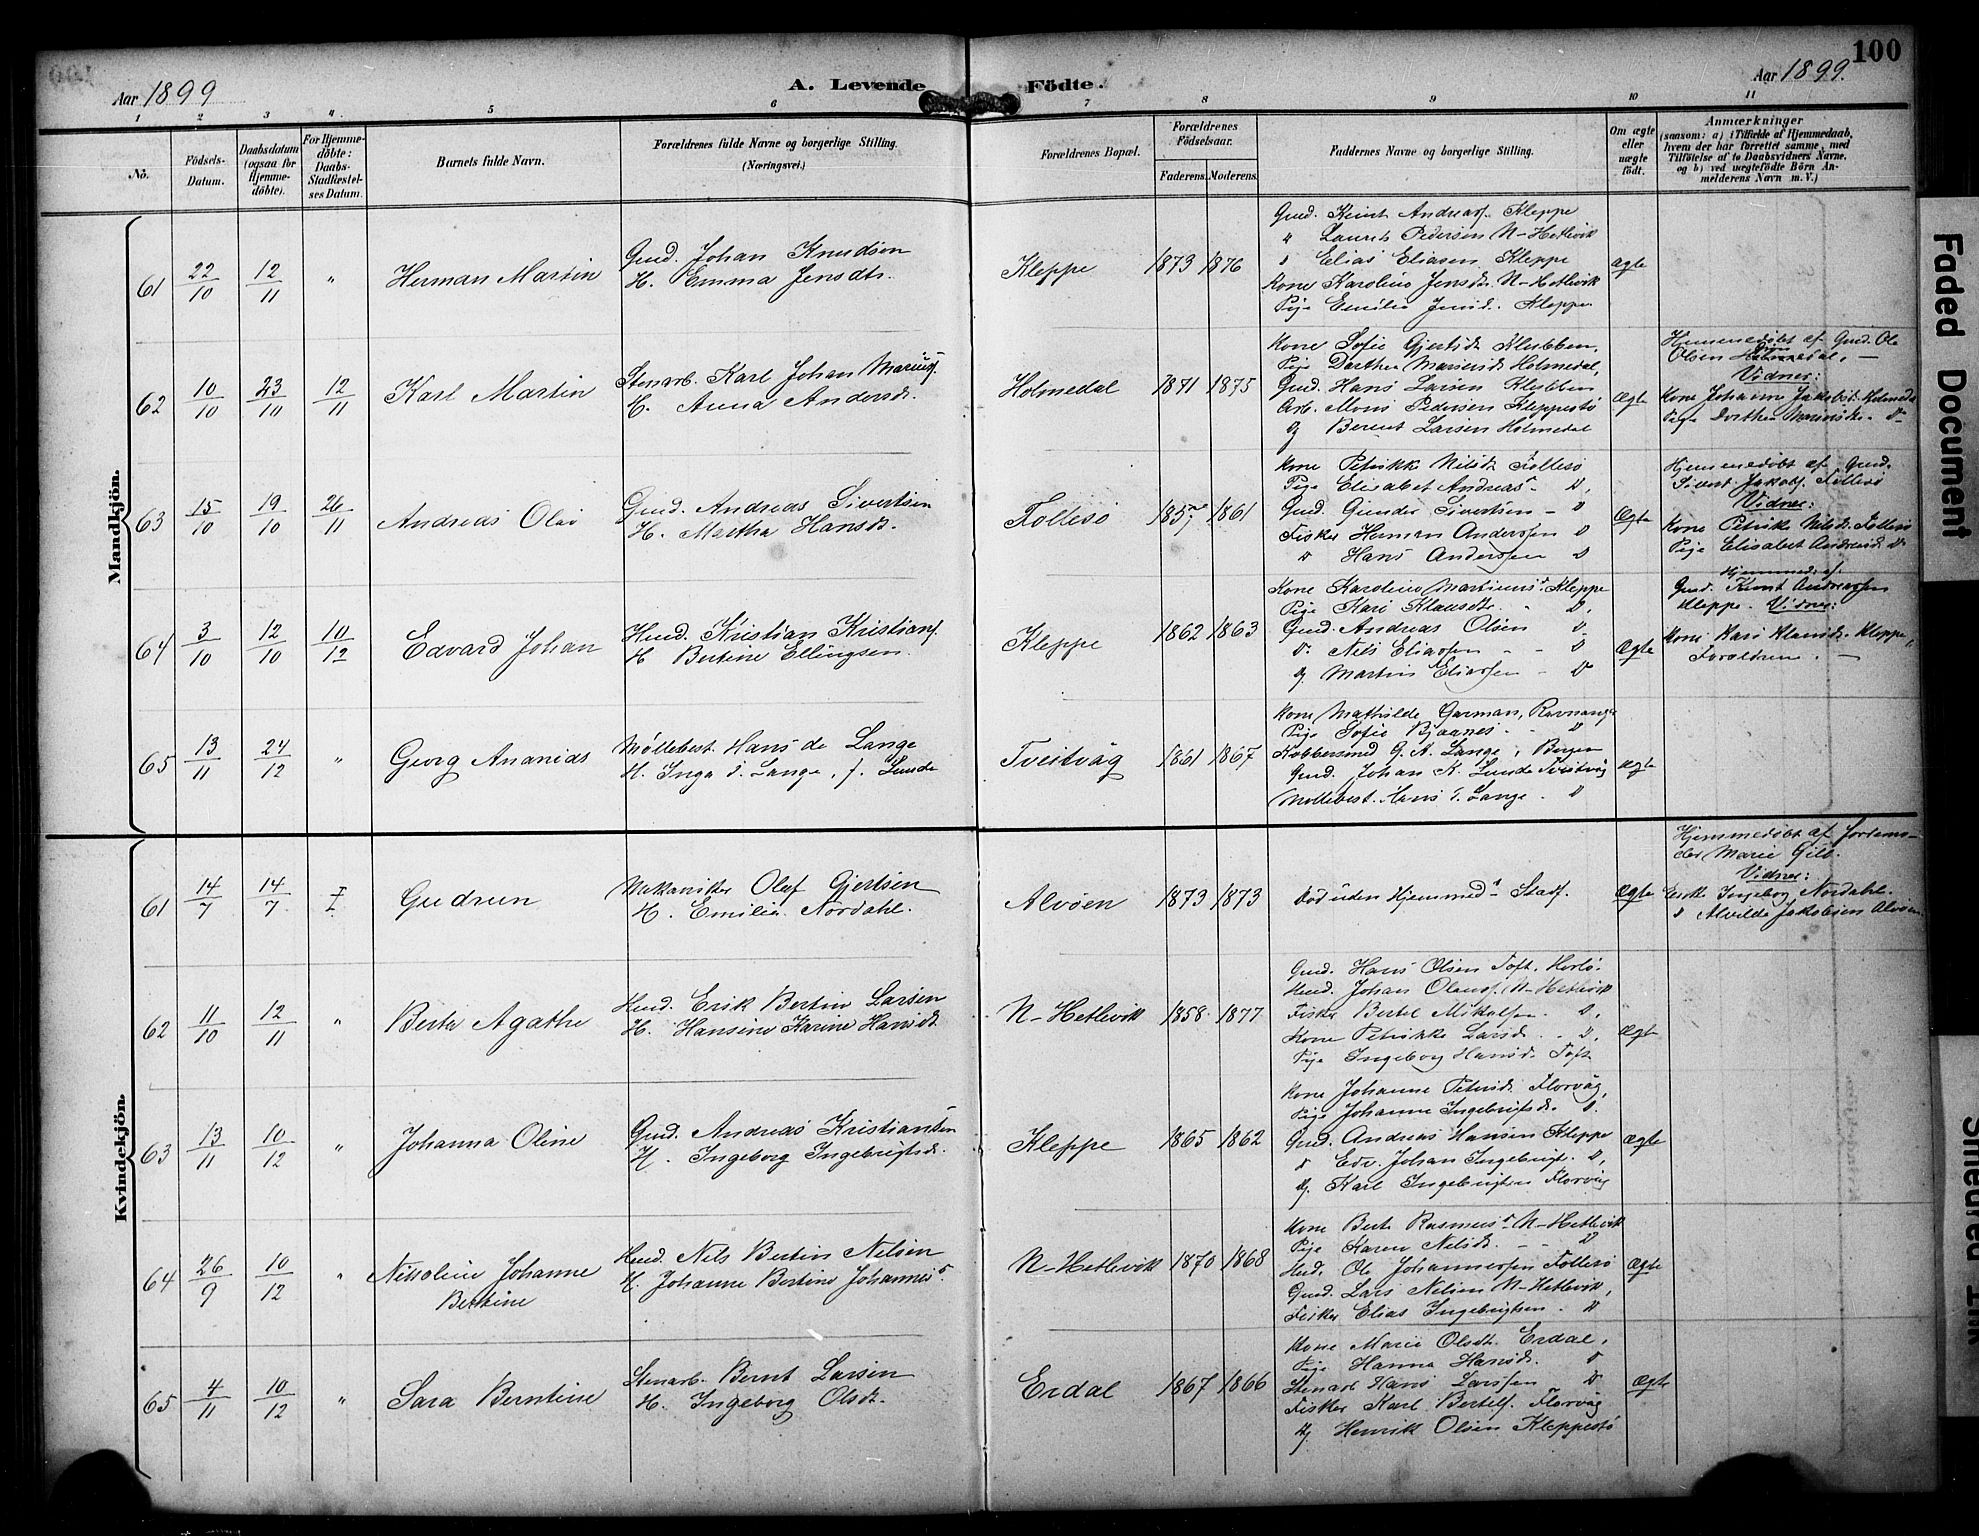 100
Aar 1899
A. Levende Födte.
Aar 1899.
1 2 3 4. 5 6 7 8 9 10 11
No.
Födsels-Datum.
Daabsdatum (ogsaa for Hjemme-döbte).
For Hjemme-döbte: Daabs-Stadfæstel-ses Datum.
Barnets fulde Navn.
Forældrenes fulde Navne og borgerlige Stilling.
(Næringsvei.)
Forældrenes Bopæl.
Forældrenes Födselsaar.
Faderens. Moderens.
Faddernes Navne og borgerlige Stilling.
Om ægte eller uægte födt.
Anmærkninger
(saasom: a) i Tilfælde af Hjemmedaab, hvem der har forrettet samme, med Tilföielse af to Daabsvidners Navne, og b) ved uægtefödte Börn Anmelderens Navn m. V.)
Mandkjön.
61 22/10 12/11 " Herman Martin
Gmd. Johan Knudsen
H. Emma Jensdtr.
Kleppe 1873 1876
Gmd. Knut Andreasf. Kleppe
" Laurits Pedersen N-Hetlevik
" Elias Eliasen Kleppe
Kone Karoline Jensdt. N-Hetlevik
Pige Emilie Jensd. Kleppe
ægte
62 10/10 23/10 12/11 Karl Martin
Stenarb. Karl Johan Mariusf.
H. Anna Andersdt.
Holmedal 1871 1875
Kone Sofie Gjertsdt
Pige Dorthea Mariusdt Holmedal,
Gmd. Hans Larsen
Arb. Mons Pedersen Kleppestø
Og Berent Larsen Holmedal
Ægte
Hjemmedøbt af Gmd. Ole
Olsen
Vidner:
Kone Johanne Jakobsdt. Holmedal
Pige Dorthea Mariusdt. D-
63 15/10 19/10 26/11 Andreas Olai
Gmd. Andreas Sivertsen
H. Martha Hansdt.
Follesø 1857 1861
Kone Petrikke Nilsdt Follesø
Pige Elisabet Andreasd- D,
Gmd. Gunder Sivertsen - D
Fisker Herman Anderssen D
" Hans Anderssen D
Ægte
Hjemmedøbt af Gmd.
Sivert Jakobsf. Follesø
Vidner:
Kone Petrikke Nilsdt. Follesø
Pige Elisabet Andreasdt. D-
64 3/10 12/10 10/12 Edvard Johan
Husd. Kristian Kristiansf.
H Bertine Ellingsen.
Kleppe 1862 1863
Kone Karoline Martinusd. Kleppe
Pige Kari Klausdt. " D,
Gmd. Andreas Olsen D.
D. Nils Eliassen - - D
Og Martin Eliassen - D
Ægte
Hjemmed. af
Gmd. Knut Andreassen
Kleppe. Vidner:
Kone Kari Klausdt. Kleppe,
Forældrene. -
65 13/11 24/12 " Georg Ananias
Møllebest. Hans de Lange
H. Inga d. Lange, f. Lunde
Tveitvåg 1861 1867
Kone Mathilde Garman, Ravnanger
Pige Sofie Bjaanes - D
Kobbersmed G. A. Lange, Bergen
Gmd. Johan K. Lunde Tveitvåg
Møllebest. Hans d. Lange - D
Ægte
Kvindekjön.
61 14/7 14/7 Gudrun
Mekaniker Olaf Gjertsen
H. Emilia Nordahl.
Alvøen 1873 1873
Død uden Hjemmeds Stadf.
Ægte
Hjemmedøbt af Jordemo-
der Marie Gilb.
Vidner:
Enke Ingeborg Nordahl.
D Alvilde Jakobsen Alvøen
62 11/10 12/11 " Berta Agathe
Husd. Erik Bertin Larsen
H. Hansine Karine Hansdt.
N-Hetlevik 1858 1877
Gmd. Hans Olsen Toft. Herlø.
Husd. Johan Olausf. N-Hetlevik
Fisker Bertel Mikalsen. D,
Kone Petrikke Larsd. - D,
Pige Ingeborg Hansd. Toft
Ægte
63 13/11 10/12 " Johanna Oline
Gmd. Andreas Kristiansen
H. Ingeborg Ingebrigtsd.
Kleppe 1865 1862
Kone Johanne Petersdt. Florvåg,
Pige Johanne Ingebrigtsdt. D.
Gmd. Andreas Hansen Kleppe
D Edv. Johan Ingebrigt. D,
Og. Karl Ingebrigtsen Florvåg
Ægte
64 26/9 10/12 " Nikoline Johanne
Bertine
Husd. Nils Bertin Nilsen
H. Johanne Bertine Johannesd.
N-Hetlevik 1870 1868
Kone Berte Rasmusd. N-Hetlevik
Pige Karen Nilsdt. - - D
Husd. Ole Johannessen Follesø
Gmd. Lars Nilsen N-Hetlevik,
Fisker Elias Ingebrigtsen - D
Ægte
65 4/11 10/12 " Sara Berntine
Stenarb. Bernt Larsen
H. Ingeborg Olsdt.
Erdal 1867 1866
Kone Marie Olsdt. Erdal,
Pige Hanna Hansdt. D
Stenarb Hans Larssen D
Fisker Karl Bertelf. Florvåg
Og Henrik Olsen Kleppestø
Ægte
Faded Document
Smeared Ink